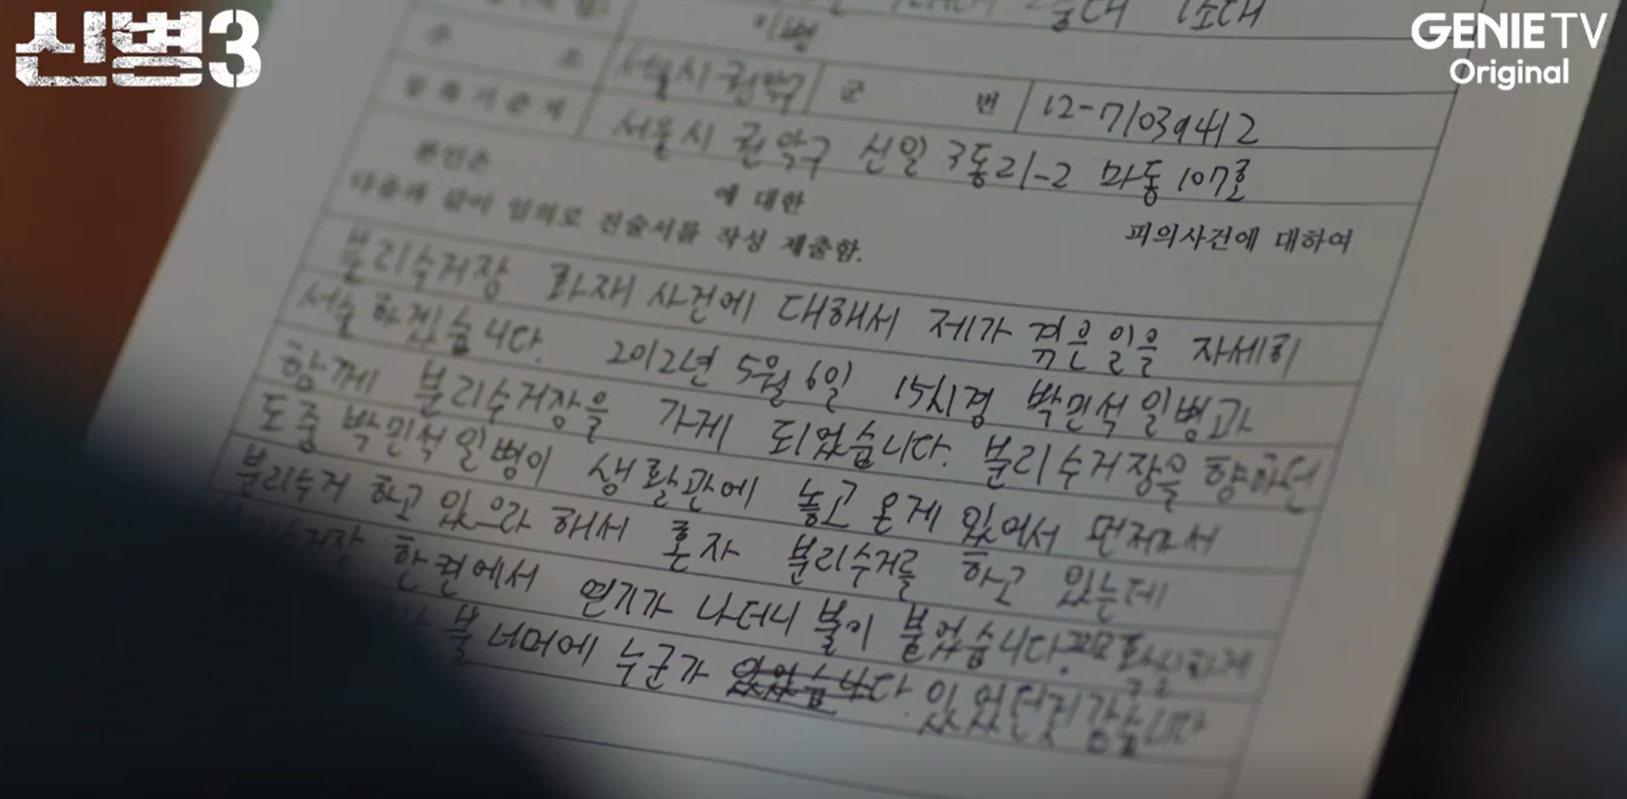 신병3
GENIE TV
Original
이병
주 소 서울시 관악구 군 번 12-71039412
등록기준지 서울시 관악구 신일 3동 21-2 마동 107호
본인은 에 대한 피의사건에 대하여
다음과 같이 임의로 진술서를 작성 제출함.
분리수거장 화재 사건에 대해서 제가 겪은 일을 자세히
서술 하겠습니다. 2012년 5월 6일 15시경 박민석 일병과
함께 분리수거장을 가게 되었습니다. 분리수거장을 향하던
도중 박민석 일병이 생활관에 놓고 온게 있어서 먼저가서
분리수거 하고 있으라 해서 혼자 분리수거를 하고 있는데
한켠에서 연기가 나더니 불이 붙었습니다.
불 너머에 누군가 있었습니다. 있었던것 같습니다